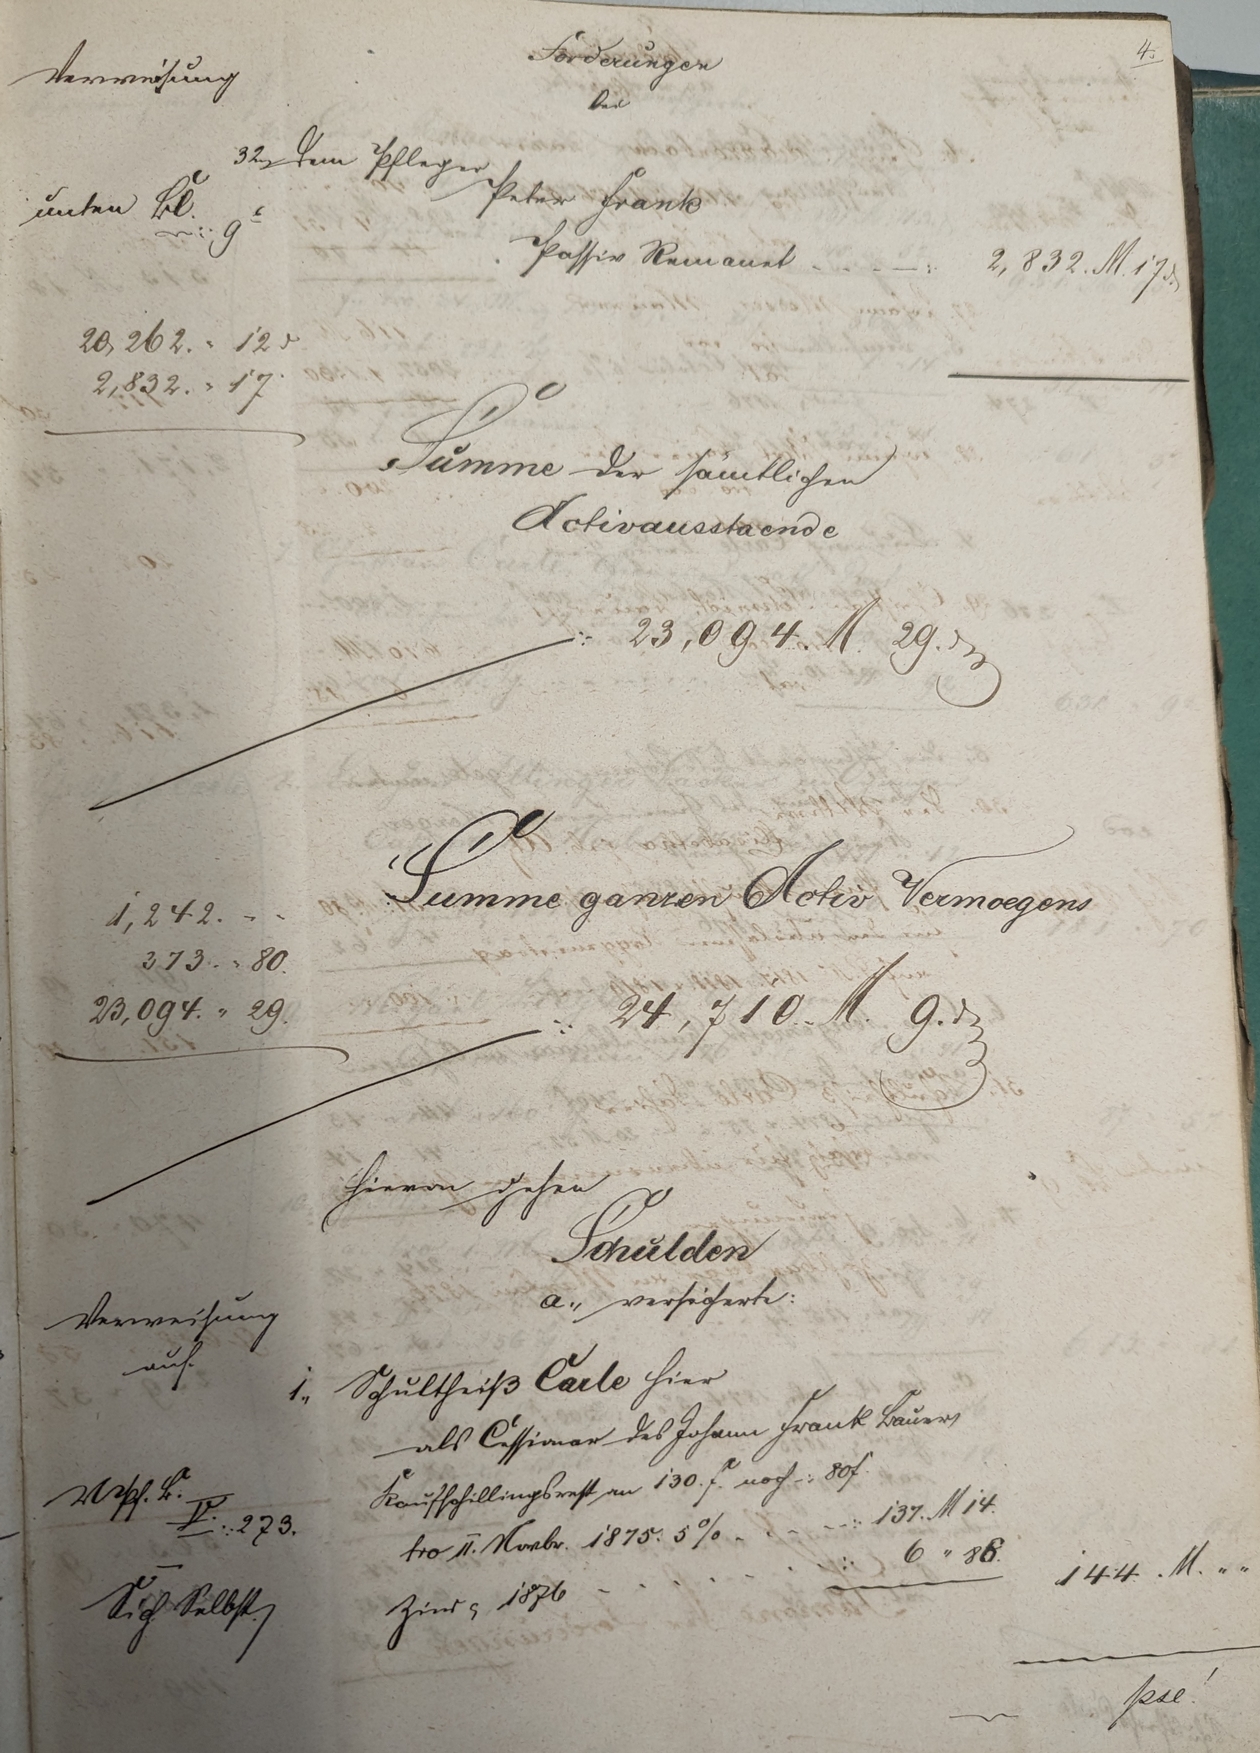 4.
Forderungen
bei
Verweisung
32., dem Pfleger
unten Bl. 9
Peter Frank
Passiv Remanet - - - : 2,832. M. 17 d.
20,262. " 12
2,832. " 17
Summe der sämtlichen
Activausstaende
: 23,094. M. 29. d
Summe ganzen Activ Vermoegens
1,242. - -
373. " 80.
23,094. " 29.
: 24,710. M. 9. d
Hievon gehen
Schulden
a., versicherte:
Verweisung
auf.
1., Schultheiß Carle hier
als Cessionar des Johann Frank Bauers
Kaufschillingsrest an 130. f. noch : 80 f.
B. V. : 273.
tro 11. Novbr. 1875. 5% - - : 137. M 14.
Zins 1876 - - - : 6 " 86. 144. M. " "
Sich Selbst.
pse!